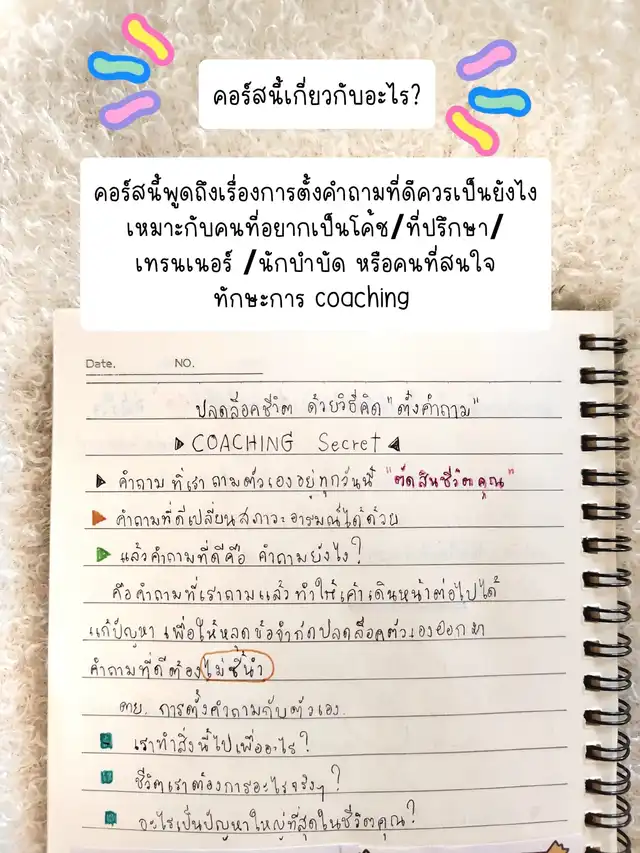 คอร์สนี้เกี่ยวกับอะไร?
คอร์สนี้พูดถึงเรื่องการตั้งคำถามที่ดีควรเป็นยังไง
เหมาะกับคนที่อยากเป็นโค้ช/ที่ปรึกษา/
เทรนเนอร์ /นักบำบัด หรือคนที่สนใจ
ทักษะการ coaching
Date. NO.
ปลดล็อคชีวิต ด้วยวิธีคิด "ตั้งคำถาม"
COACHING Secret
คำถาม ที่เรา ถามตัวเองอยู่ทุกวันนี้ "ตัดสินชีวิตคุณ"
คำถามที่ดีเปลี่ยนสภาวะอารมณ์ได้ด้วย
แล้วคำถามที่ดีคือ คำถามยังไง?
คือคำถามที่เราถามแล้ว ทำให้เค้าเดินหน้าต่อไปได้
แก้ปัญหา เพื่อให้หลุดข้อจำกัดปลดล็อคตัวเองออกมา
คำถามที่ดีต้องไม่ชี้นำ
ตย. การตั้งคำถามกับตัวเอง.
เราทำสิ่งนี้ไปเพื่ออะไร?
ชีวิตเราต้องการอะไรจริงๆ?
อะไรเป็นปัญหาใหญ่ที่สุดในชีวิตคุณ?